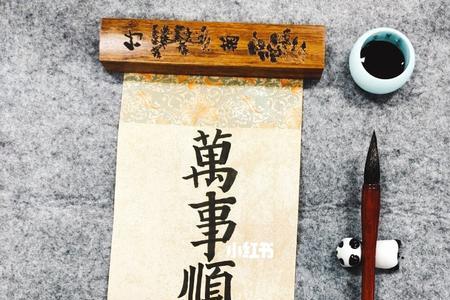 萬事順
小红书